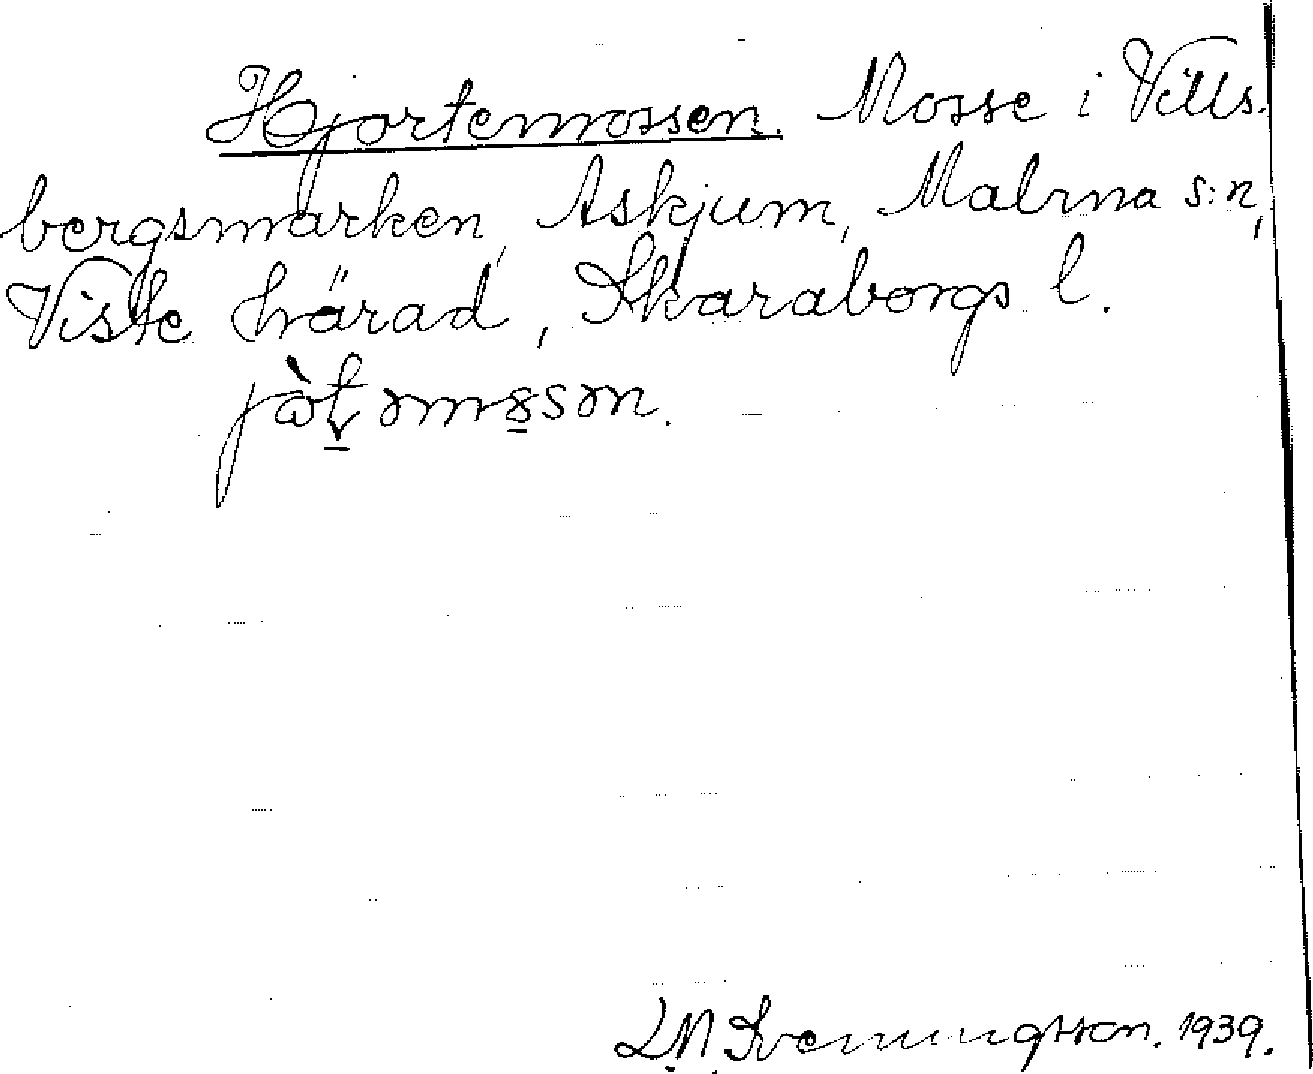 Hjortemossen. Mosse i Vills-
bergsmarken, Askjum, Malma s:n,
Viste härad, Skaraborgs l.
L.N. Svenungsson. 1939.